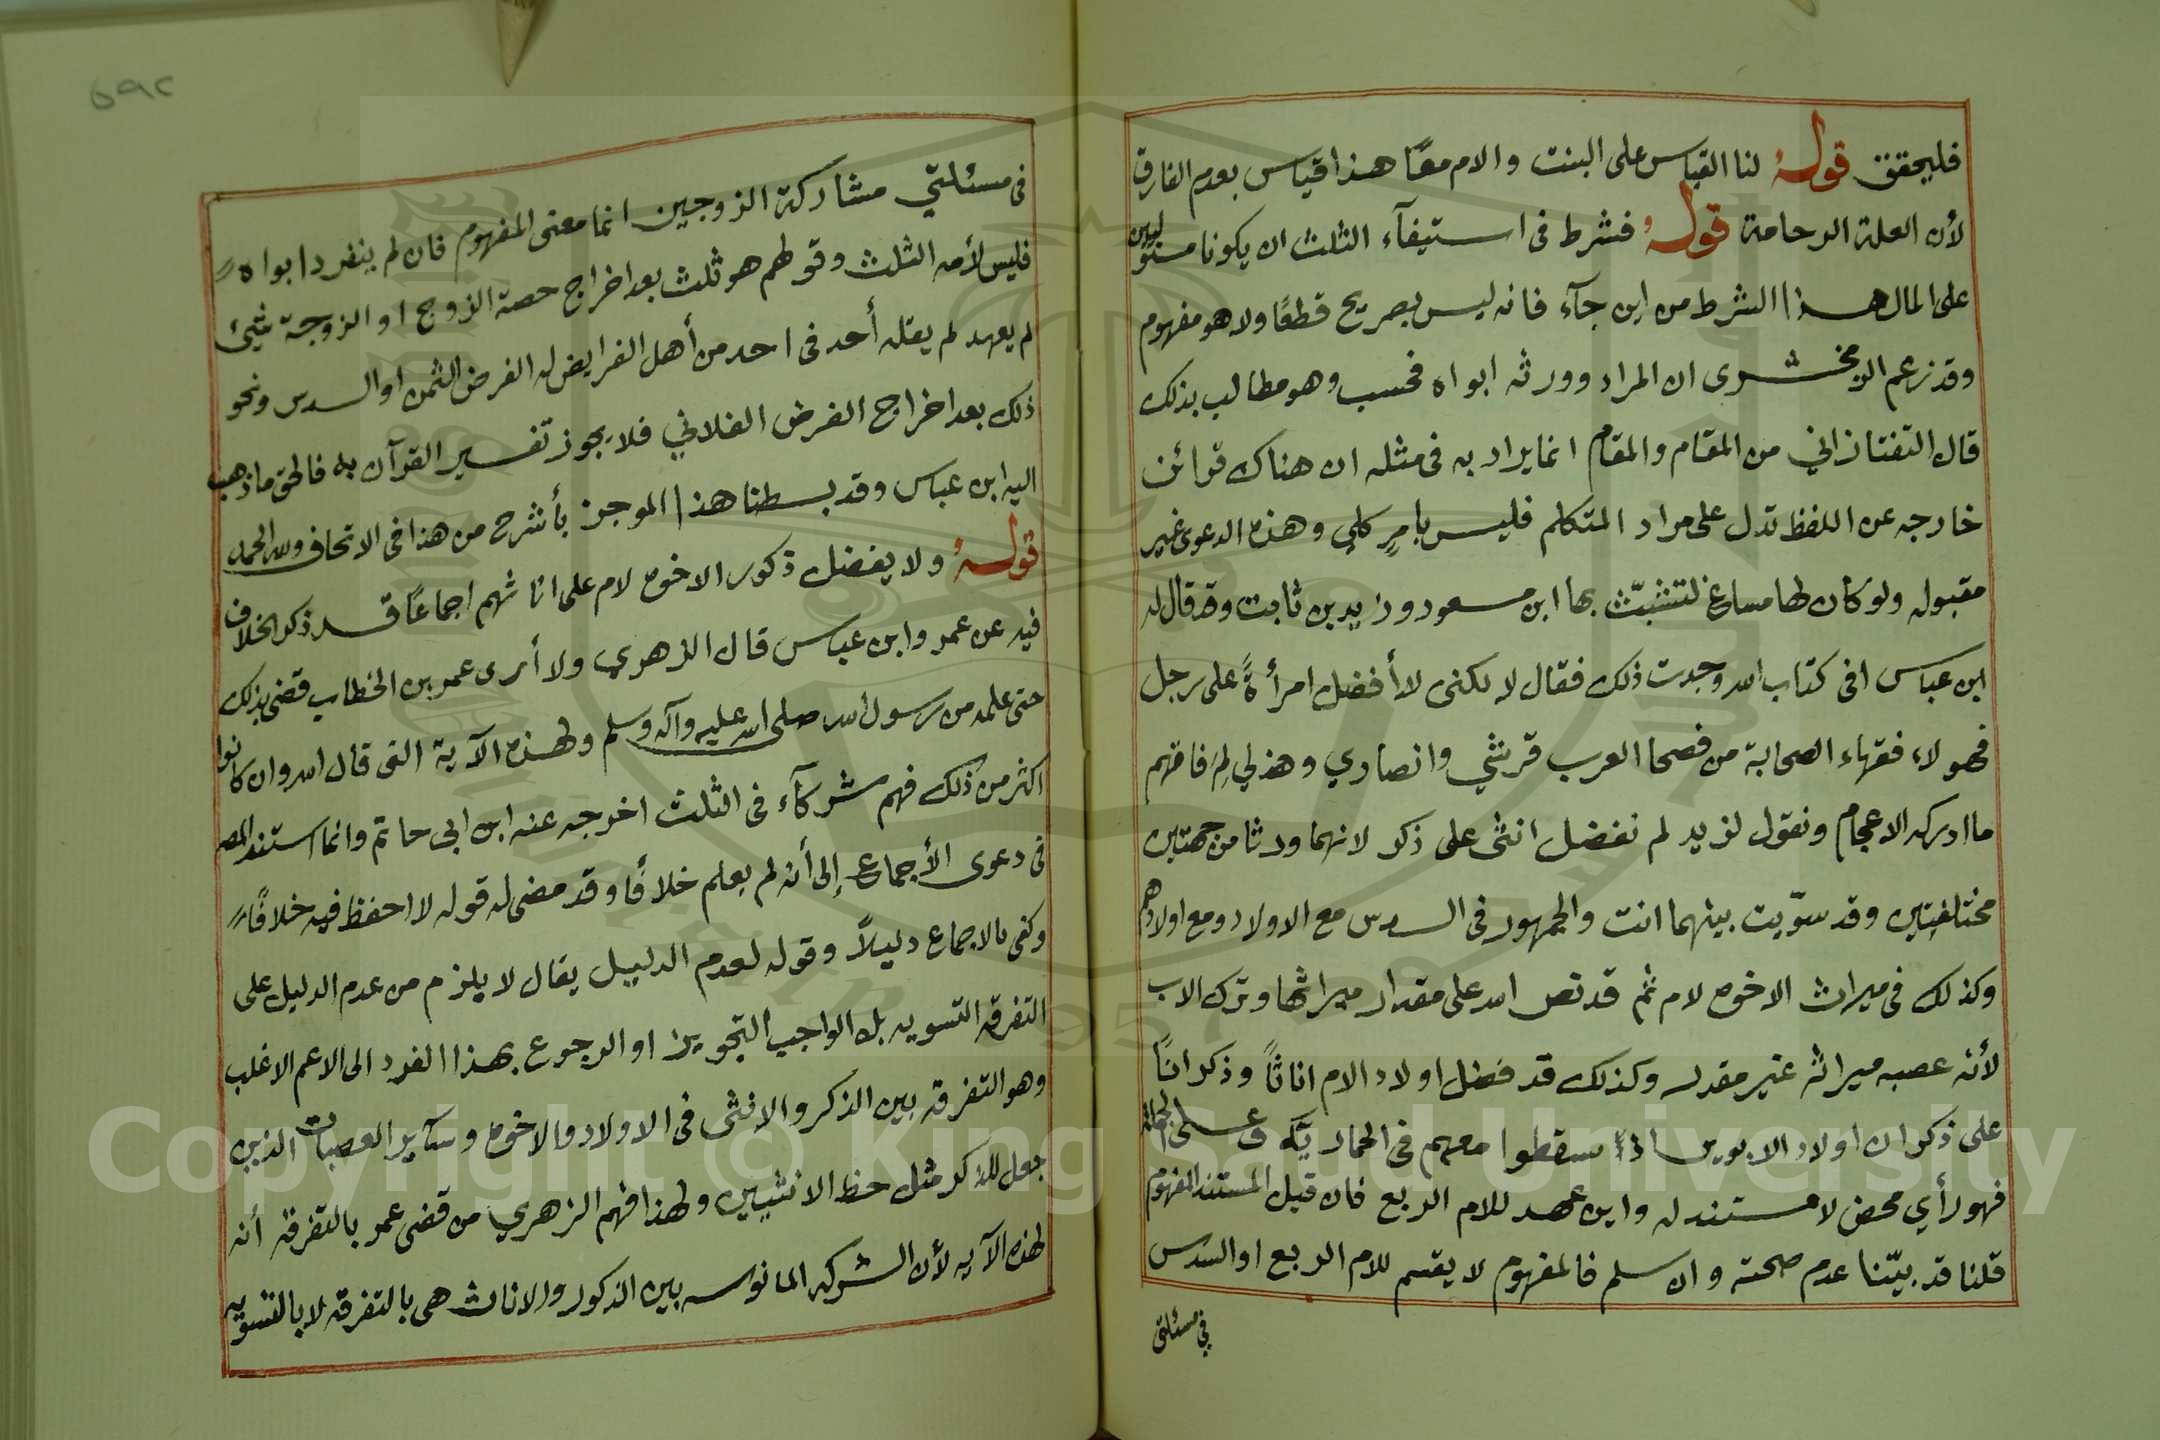 فليحقق قولهُ لنا القياس على البنت والام معًا هذا قياس بعدم الفارق
لأن العلة الرحامة قولهُ فشرط فى استيفآء الثلث ان يكونا مستوليين
على المال هذا الشرط من اين جآء فانه ليس بصريح قطعًا ولا هو مفهوم
وقد زعم الزمخشرى ان المراد وورثه ابواه فحسب وهو مطالب بذلك
قال التفتازاني من المقام والمقام انما يراد به فى مثله ان هناك قرائن
خارجه عن اللفظ تدل على مراد المتكلم فليس بامرٍ كلي وهذه الدعوى غير
مقبوله ولو كان لها مساغ لتشبّث بها ابن مسعود وزيد بن ثابت وقد قال له
ابن عباس افى كتاب الله وجدت ذلك فقال لا لكنى لا أفضل امرأةً على رجل
فهولاء فقهاء الصحابة من فصحا العرب قرشي وانصاري وهذلي لِمَ فاتهم
ما ادركه الاعجام ونقول لزيد لم نفضل انثى على ذكر لانهما ورثا من جهتين
مختلفتين وقد سوّيت بينهما انت والجمهور فى السدس مع الاولاد ومع اولادهم
وكذلك فى ميراث الاخوه لام ثم قد نص الله على مقدار ميراثها وترك الاب
لأنه عصبه ميراثه غير مقدر وكذلك قد فضل اولاد الام اناثًا وذكرانًا
على ذكران اولاد الابوين اذا سقطوا معهم فى الحماريّه وعلى الجملة
فهو رأي محض لا مستند له واين عهد للام الربع فان قيل المستند المفهوم
قلنا قد بيّنا عدم صحته وان سلم فالمفهوم لا يقسم للام الربع او السدس
في مسئلتى
٥٩٢
فى مسئلتي مشاركة الزوجين انما معنى المفهوم فان لم ينفرد ابواه
فليس لأمه الثلث وقولهم هو ثلث بعد اخراج حصة الزوج او الزوجة شيئ
لم يعهد لم يقله أحد فى احد من أهل الفرايض له الفرض الثمن او السدس ونحو
ذلك بعد اخراج الفرض الفلاني فلا يجوز تفسير القرآن به فالحق ما ذهب
اليه ابن عباس وقد بسطنا هذا الموجز بأشرح من هذا فى الاتحاف ولله الحمد
قولهُ ولا يفضل ذكور الاخوه لام على اناثهم اجماعًا قد ذكر الخلاف
فيه عن عمر وابن عباس قال الزهري ولا أرى عمر بن الخطاب قضى بذلك
حتى علمه من رسول الله صلى الله عليه وآله وسلم ولهذه الآية التى قال الله وان كانوا
اكثر من ذلك فهم شركآء فى الثلث اخرجه عنه ابن ابى حاتم وانما استند المصـ
فى دعوى الأجماع إلى أنه لم يعلم خلافًا وقد مضى له قوله لا احفظ فيه خلافًا
وكفى بالاجماع دليلًا وقوله لعدم الدليل يقال لا يلزم من عدم الدليل على
التفرقه التسويه بل الواجب التجويز او الرجوع بهذا الفرد الى الاعم الاغلب
وهو التفرقه بين الذكر والانثى فى الاولاد والاخوه وسآير العصبات الذين
جعل للذكر مثل حظ الانثيين ولهذا فهم الزهري من قضى عمر بالتفرقه أنه
لهذه الآيه لأن الشركه المانوسه بين الذكور والاناث هى بالتفرقه لا بالتسويه
Copyright © King Saud University
1957